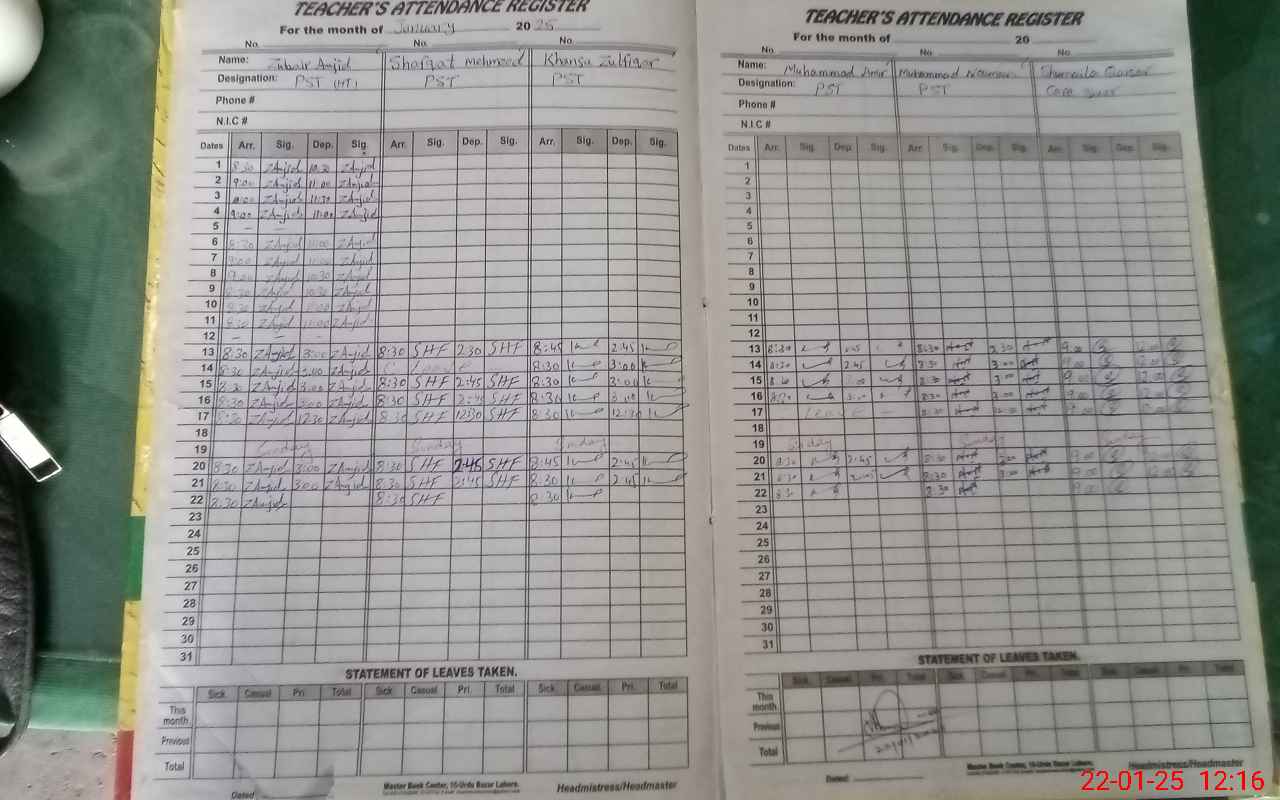 TEACHER'S ATTENDANCE REGISTER
For the month of January 2025
No. No. No.
Name: Zubair Amjid Shafqat Mehmood Khansa Zulfiqar
Designation: PST (HT) PST PST
Phone #
N.I.C #
Dates Arr. Sig. Dep. Sig. Arr. Sig. Dep. Sig. Arr. Sig. Dep. Sig.
1 8:30 ZAmjid 10:30 ZAmjid
2 9:00 ZAmjid 11:00 ZAmjid
3 ZAmjid 11:30 ZAmjid
4 9:00 ZAmjid 11:00 ZAmjid
5 — —
6 8:30 ZAmjid 11:00 ZAmjid
7 9:00 ZAmjid 11:00 ZAmjid
8 9:00 ZAmjid 10:30 ZAmjid
9 8:30 ZAmjid 10:30 ZAmjid
10 8:30 ZAmjid ZAmjid
11 8:30 ZAmjid 11:00 ZAmjid
12
13 8:30 ZAmjid 3:00 ZAmjid 8:30 SHF 2:30 SHF 8:45 2:45
14 8:30 ZAmjid 3:00 ZAmjid Leave 8:30 3:00
15 8:30 ZAmjid 3:00 ZAmjid 8:30 SHF 2:45 SHF 8:30 3:00
16 8:30 ZAmjid 3:00 ZAmjid 8:30 SHF 2:45 SHF 8:30 3:00
17 8:30 ZAmjid 12:30 ZAmjid 8:30 SHF 12:30 SHF 8:30 12:30
18
19 Sunday Sunday Sunday
20 8:30 ZAmjid 3:00 ZAmjid 8:30 SHF 2:45 SHF 8:45 2:45
21 8:30 ZAmjid 3:00 ZAmjid 8:30 SHF 2:45 SHF 8:30 2:45
22 8:30 ZAmjid 8:30 SHF 8:30
23
24
25
26
27
28
29
30
31
STATEMENT OF LEAVES TAKEN.
Sick Casual Pri. Total Sick Casual Pri. Total Sick Casual Pri. Total
This month
Previous
Total
Dated
Master Book Center, 15-Urdu Bazar Lahore.
Headmistress/Headmaster
TEACHER'S ATTENDANCE REGISTER
For the month of 20
No. No. No.
Name: Muhammad Amir Muhammad Nouman Shumaila
Designation: PST PST Care
Phone #
N.I.C #
Dates Arr. Sig. Dep. Sig. Arr. Sig. Dep. Sig. Arr. Sig. Dep. Sig.
1
2
3
4
5
6
7
8
9
10
11
12
13 8:30 2:45 8:30 2:30 9:00 12:00
14 8:30 2:45 8:30 3:00 9:00 12:00
15 8:30 3:00 8:30 3:00 9:00 12:00
16 8:30 3:00 8:30 3:00 9:00 12:00
17 Leave 8:30 12:30 9:00 12:00
18
19 Sunday Sunday Sunday
20 8:30 2:45 8:30 3:00 9:00 12:00
21 8:30 2:45 8:30 3:00 9:00 12:00
22 8:30 8:30 9:00
23
24
25
26
27
28
29
30
31
STATEMENT OF LEAVES TAKEN.
Sick Casual Pri. Total Sick Casual Pri. Total Sick Casual Pri. Total
This month
Previous
Total
Dated:
Master Book Center, 15-Urdu Bazar Lahore.
Headmistress/Headmaster
22-01-25 12:16